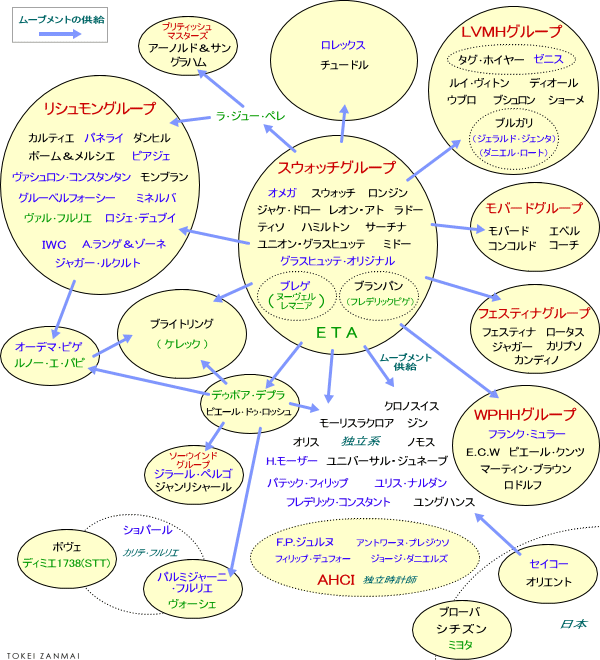 ムーブメントの供給
ブリティッシュ
マスターズ
アーノルド＆サン
グラハム
ロレックス
チュードル
LVMHグループ
タグ・ホイヤー ゼニス
ルイ・ヴィトン ディオール
ウブロ ブシュロン ショーメ
ブルガリ
(ジェラルド・ジェンタ)
(ダニエル・ロート)
リシュモングループ
カルティエ パネライ ダンヒル
ボーム＆メルシエ ピアジェ
ヴァシュロン・コンスタンタン モンブラン
グルーベルフォーシー ミネルバ
ヴァル・フルリエ ロジェ・デュブイ
IWC A.ランゲ＆ゾーネ
ジャガー・ルクルト
ラ・ジュー・ペレ
スウォッチグループ
オメガ スウォッチ ロンジン
ジャケ・ドロー レオン・アト ラドー
ティソ ハミルトン サーチナ
ユニオン・グラスヒュッテ ミドー
グラスヒュッテ・オリジナル
ブレゲ
(ヌーヴェル
レマニア)
ブランパン
(フレデリックピゲ)
ETA
モバードグループ
モバード エベル
コンコルド コーチ
フェスティナグループ
フェスティナ ロータス
ジャガー カリプソ
カンディノ
オーデマ・ピゲ
ルノー・エ・パピ
ブライトリング
(ケレック)
ムーブメント
供給
デュボア・デプラ
ピエール・ドゥ・ロッシュ
クロノスイス
モーリスラクロア ジン
オリス 独立系 ノモス
H.モーザー ユニバーサル・ジュネーブ
パテック・フィリップ ユリス・ナルダン
フレデリック・コンスタント ユングハンス
WPHHグループ
フランク・ミュラー
E.C.W ピエール・クンツ
マーティン・ブラウン
ロドルフ
ソーウインド
グループ
ジラール・ペルゴ
ジャンリシャール
ボヴェ
ディミエ1738(STT)
ショパール
カリテ・フルリエ
パルミジャーニ
・フルリエ
ヴォーシェ
F.P.ジュルヌ アントワーヌ・プレジウソ
フィリップ・デュフォー ジョージ・ダニエルズ
AHCI 独立時計師
セイコー
オリエント
ブローバ
シチズン
ミヨタ
日本
TOKEI ZANMAI